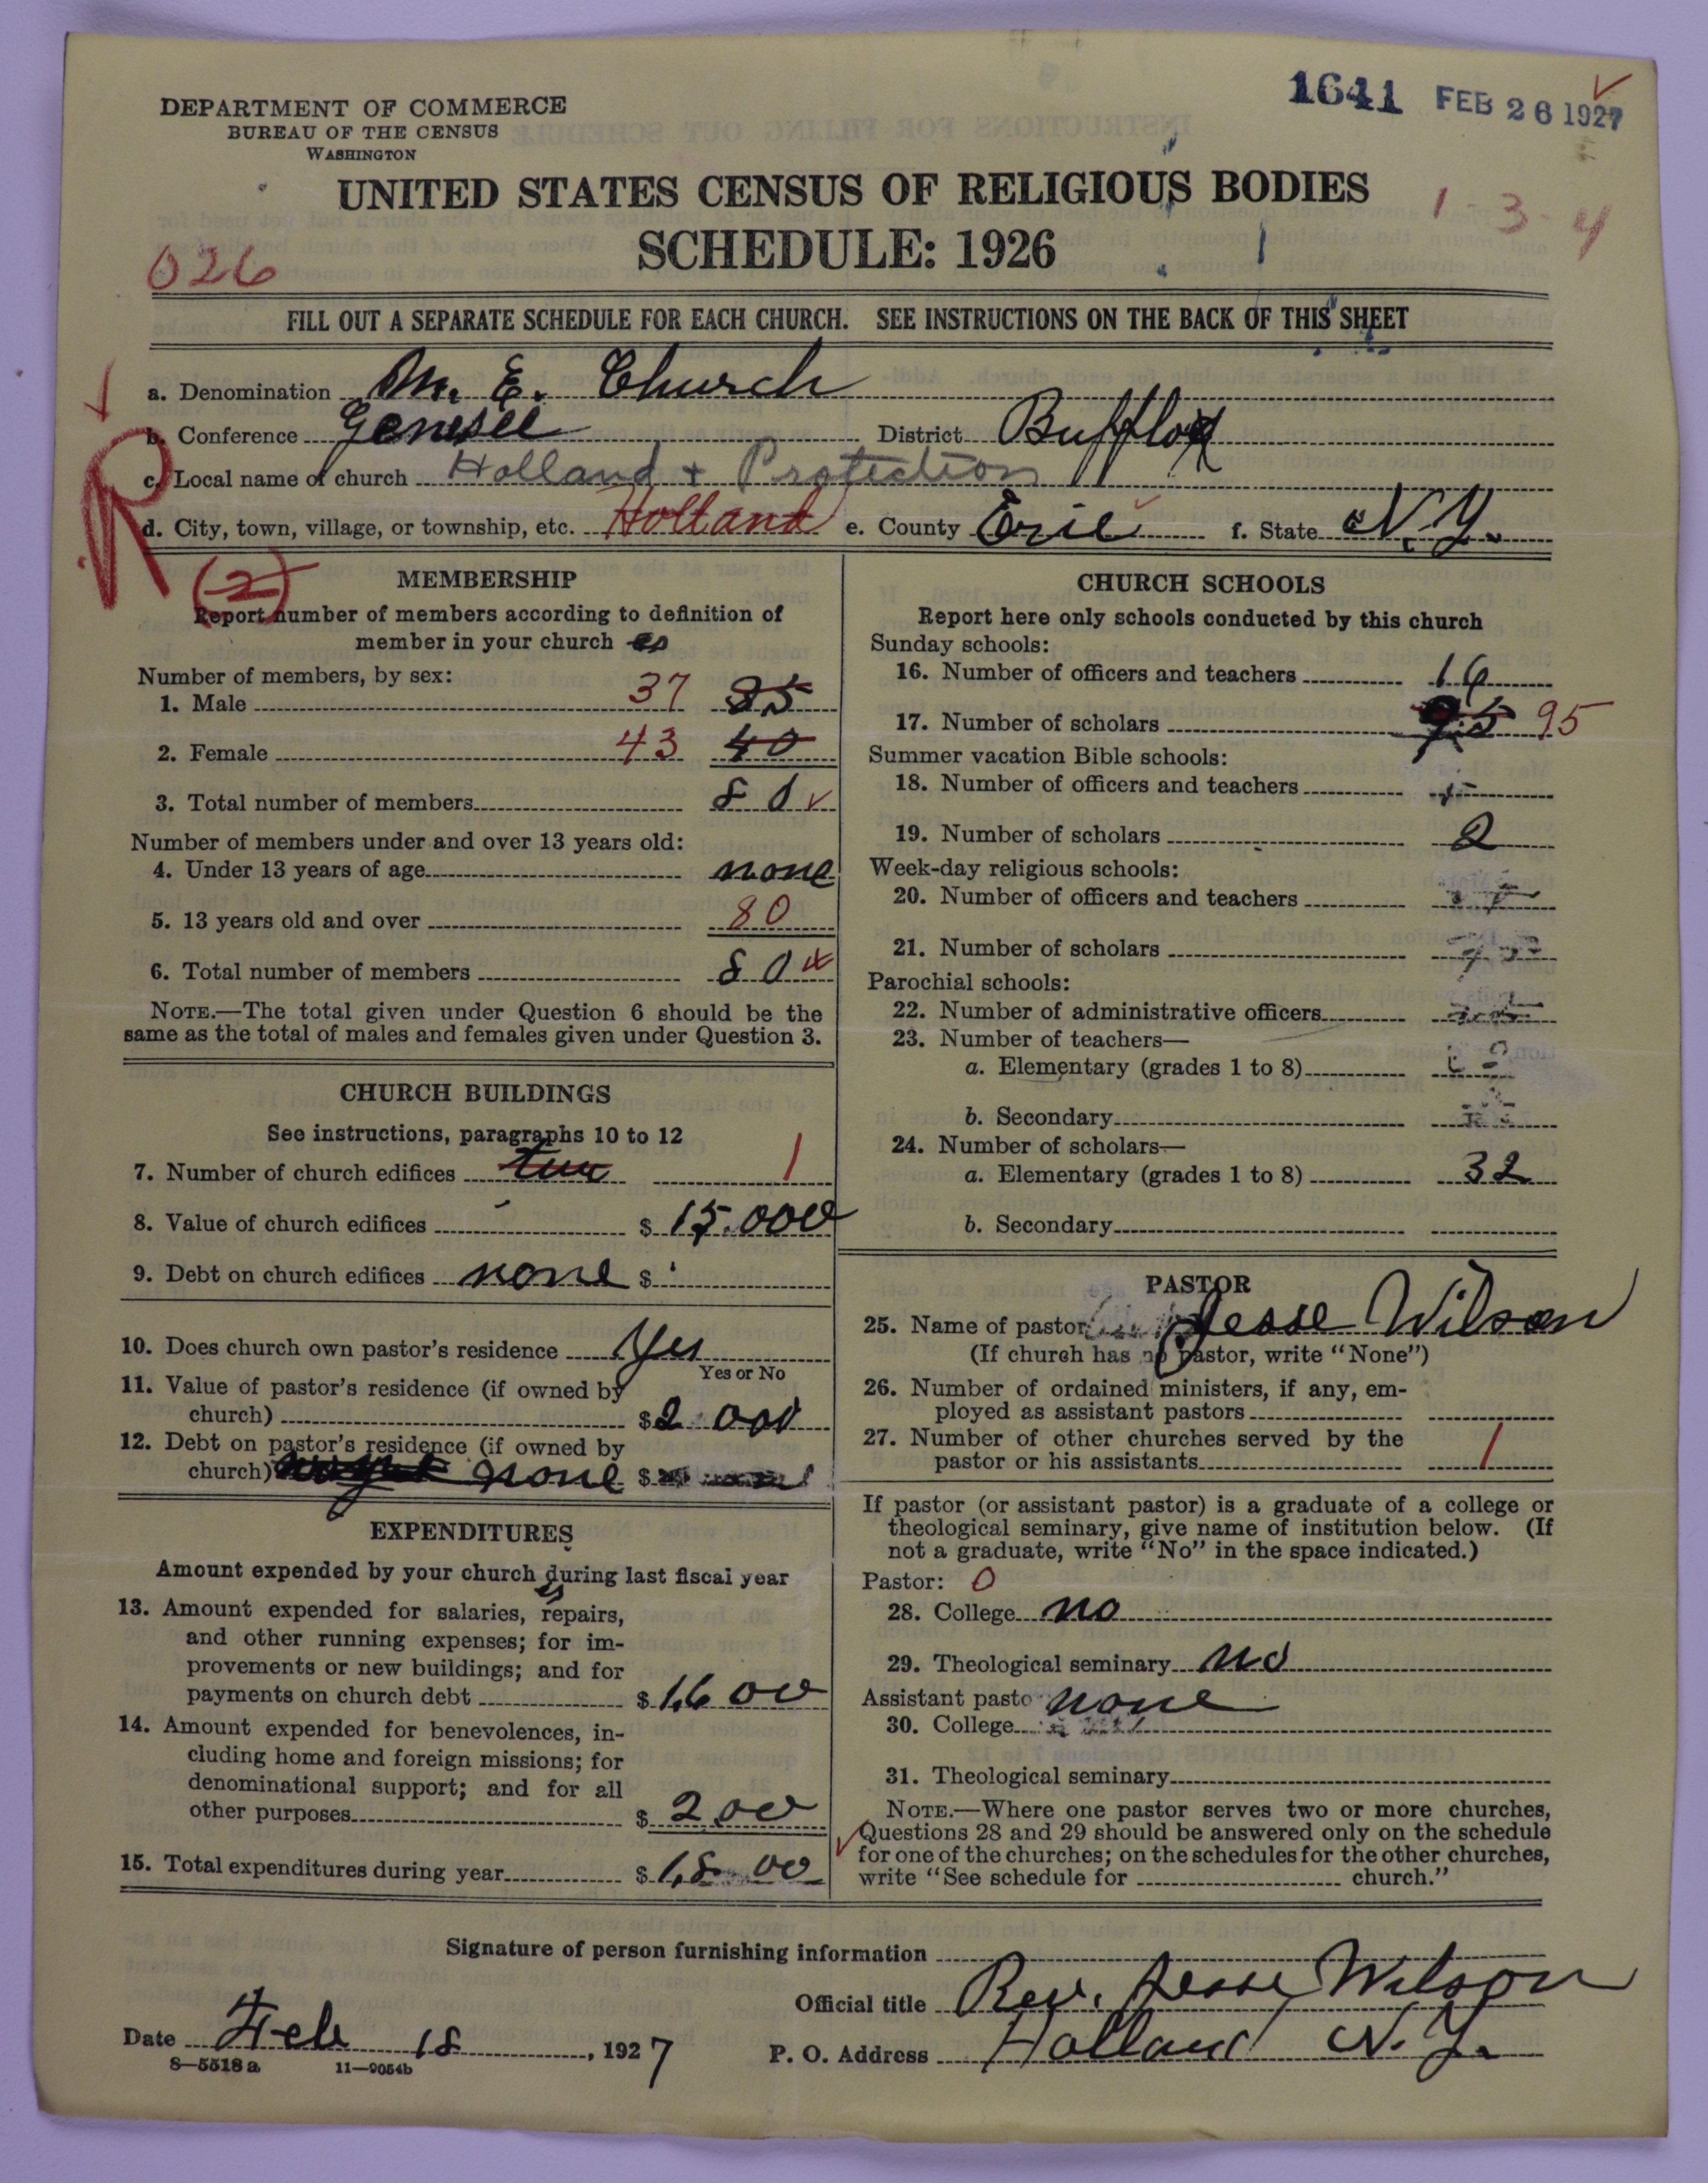 1641 FEB 26 1927
DEPARTMENT OF COMMERCE
BUREAU OF THE CENSUS
WASHINGTON
UNITED STATES CENSUS OF RELIGIOUS BODIES
1-3-4
SCHEDULE: 1926
026
FILL OUT A SEPARATE SCHEDULE FOR EACH CHURCH. SEE INSTRUCTIONS ON THE BACK OF THIS SHEET
a. Denomination M. E. Church
b. Conference Genesee District Bufflo
c. Local name of church Holland + Protection
d. City, town, village, or township, etc. Holland e. County Erie f. State N.Y.
R
(2)
MEMBERSHIP
Report number of members according to definition of
member in your church
Number of members, by sex:
1. Male 37
2. Female 43 40
3. Total number of members 80
Number of members under and over 13 years old:
4. Under 13 years of age none
5. 13 years old and over 80
6. Total number of members 80
NOTE.—The total given under Question 6 should be the
same as the total of males and females given under Question 3.
CHURCH BUILDINGS
See instructions, paragraphs 10 to 12
7. Number of church edifices two 1
8. Value of church edifices $ 15.000
9. Debt on church edifices none $
10. Does church own pastor's residence Yes
Yes or No
11. Value of pastor's residence (if owned by
church) $ 2 000
12. Debt on pastor's residence (if owned by
church) none $
EXPENDITURES
Amount expended by your church during last fiscal year
13. Amount expended for salaries, repairs,
and other running expenses; for im-
provements or new buildings; and for
payments on church debt $ 1,600
14. Amount expended for benevolences, in-
cluding home and foreign missions; for
denominational support; and for all
other purposes $ 200
15. Total expenditures during year $ 1,800
CHURCH SCHOOLS
Report here only schools conducted by this church
Sunday schools:
16. Number of officers and teachers 16
17. Number of scholars 95 95
Summer vacation Bible schools:
18. Number of officers and teachers
19. Number of scholars 2
Week-day religious schools:
20. Number of officers and teachers
21. Number of scholars
Parochial schools:
22. Number of administrative officers
23. Number of teachers—
a. Elementary (grades 1 to 8)
b. Secondary
24. Number of scholars—
a. Elementary (grades 1 to 8) 32
b. Secondary
PASTOR
25. Name of pastor Jesse Wilson
(If church has no pastor, write "None")
26. Number of ordained ministers, if any, em-
ployed as assistant pastors
27. Number of other churches served by the
pastor or his assistants 1
If pastor (or assistant pastor) is a graduate of a college or
theological seminary, give name of institution below. (If
not a graduate, write "No" in the space indicated.)
Pastor: 0
28. College no
29. Theological seminary no
Assistant pasto none
30. College
31. Theological seminary
NOTE.—Where one pastor serves two or more churches,
Questions 28 and 29 should be answered only on the schedule
for one of the churches; on the schedules for the other churches,
write "See schedule for church."
Signature of person furnishing information
Official title Rev. Jesse Wilson
Date Feb 18, 1927
P. O. Address Holland N.Y.
8—5518 a 11—9054b